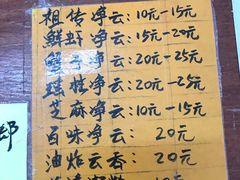 祖传净云:10元-15元
鲜虾净云:15元-20元
蟹子净云:20元-25元
强桂净云:20元-25元
芝麻净云:10元-15元
百味净云:20元
油炸云香:20元